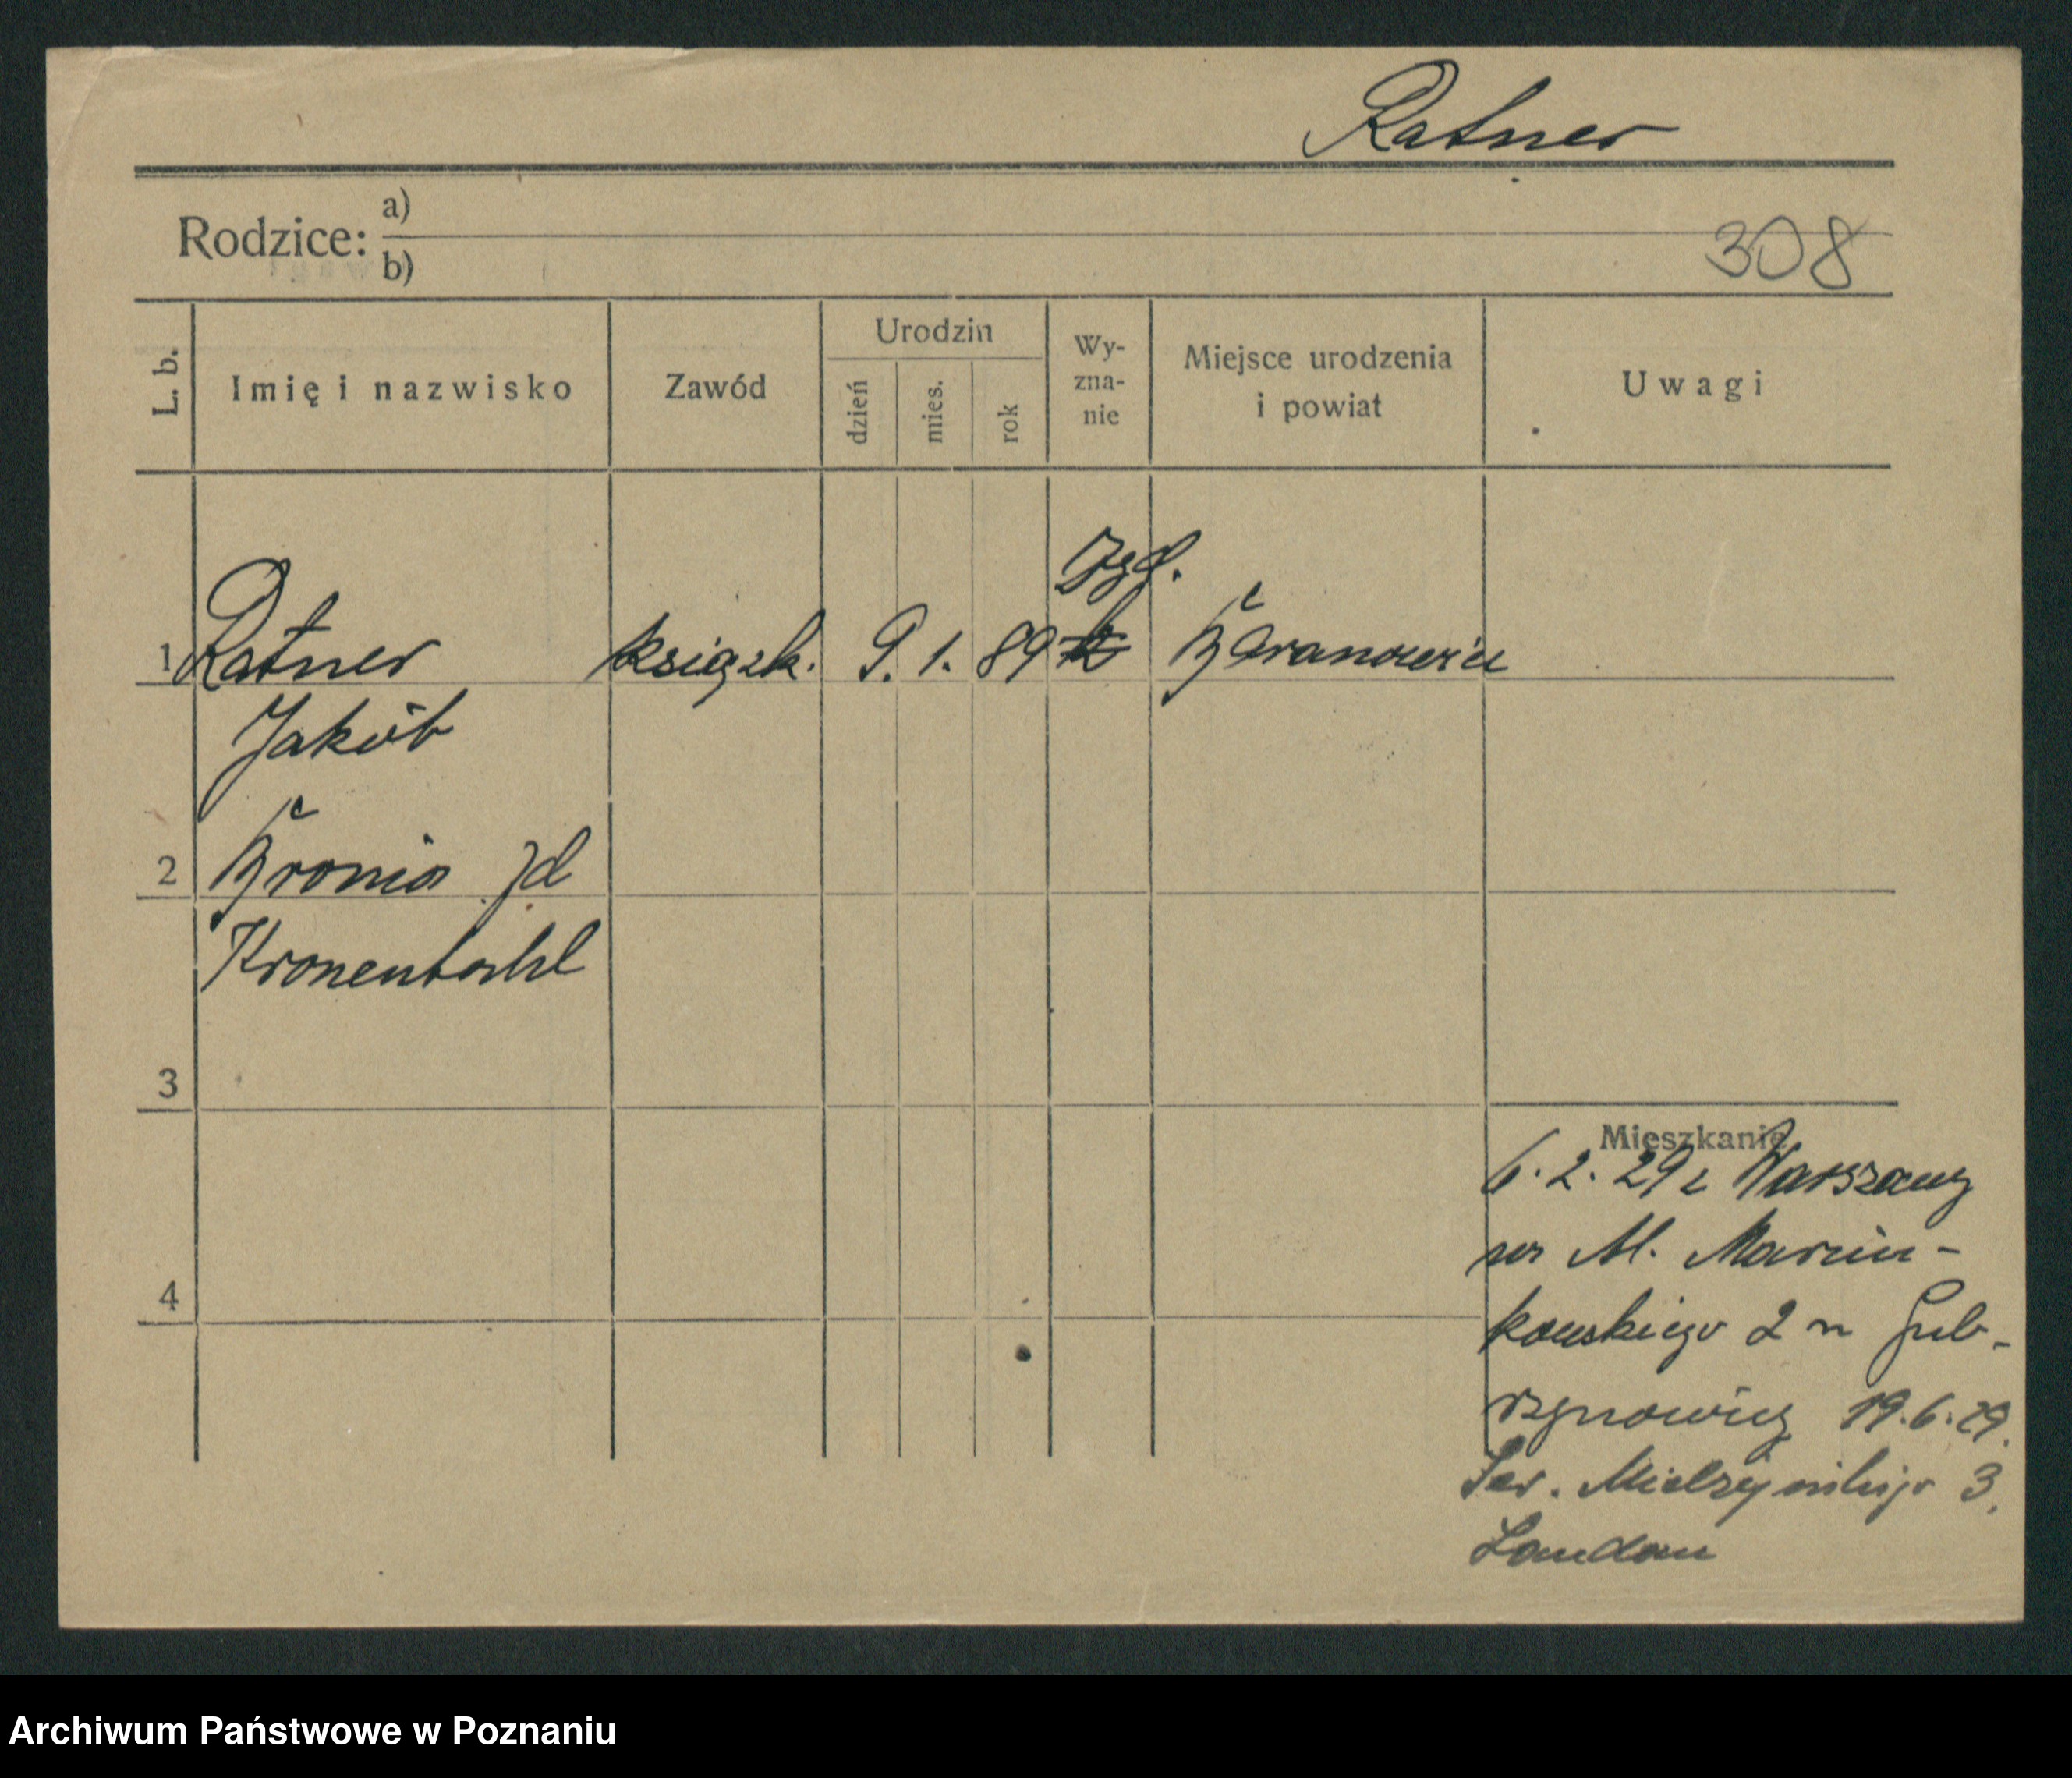 Ratner
Rodzice: a)
b)
308
L. b.
Imię i nazwisko
Zawód
Urodzin
dzień
mies.
rok
Wy-
zna-
nie
Miejsce urodzenia
i powiat
Uwagi
1 Ratner książk. 9. 1. 89 Baranowicz
Jakób
2 Bronia
Kronentahl
3
4
Mieszkanie
6. 2. 29 z Warszawy
na Al. Marcin-
kowskiego 2
19.6.29.
Sew. Mielżyńskiego 3.
Landau
Archiwum Państwowe w Poznaniu